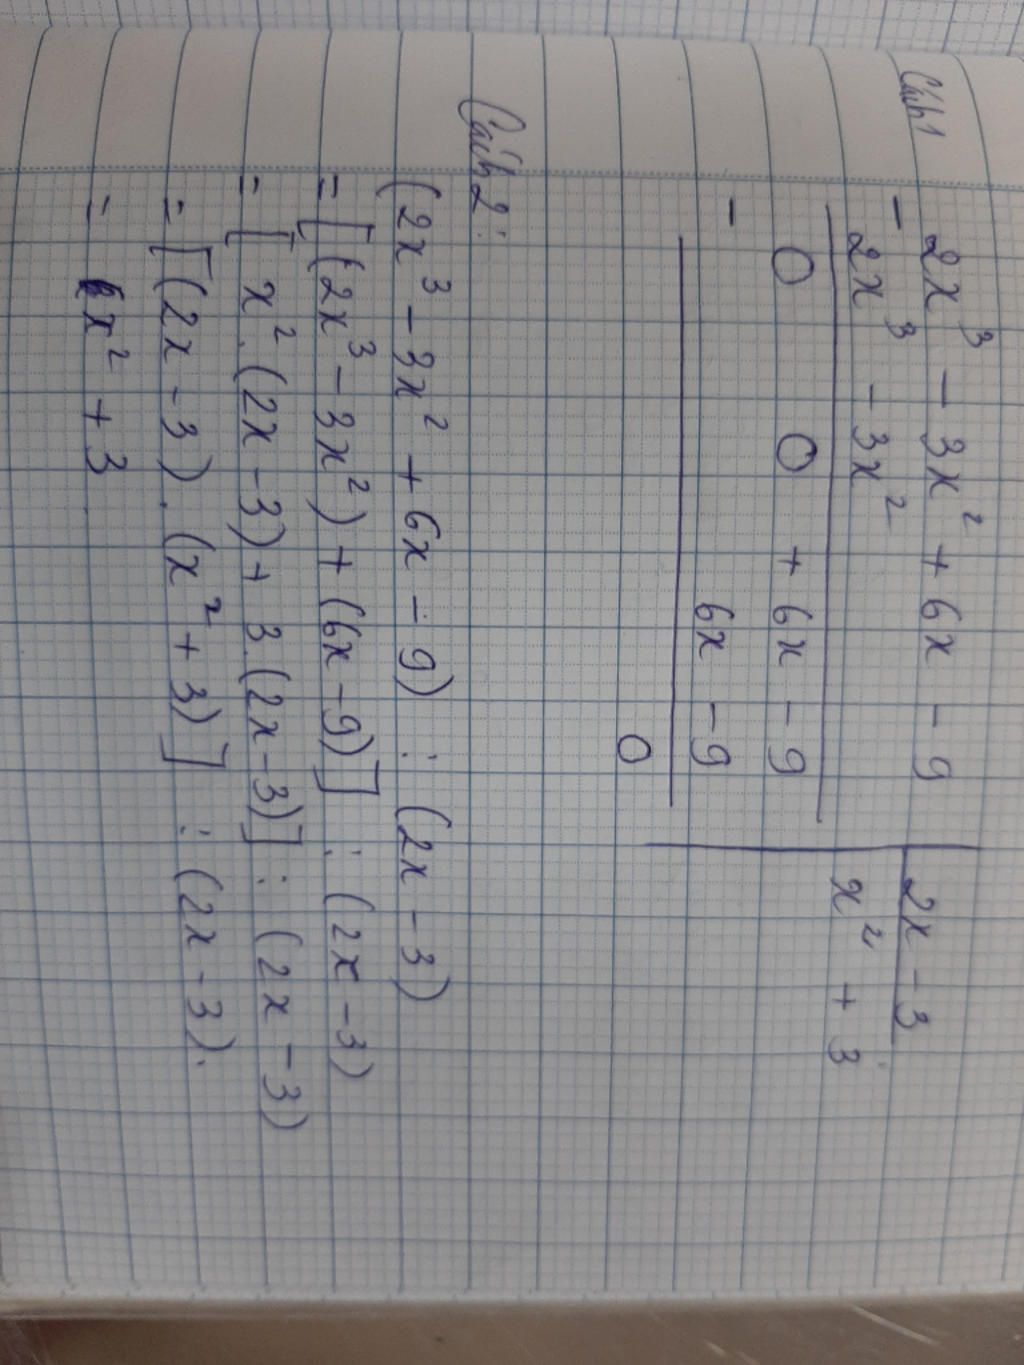 Cách 1
2x³ - 3x² + 6x - 9 | 2x - 3
- 2x³ - 3x² | x² + 3
0 0 + 6x - 9
- 6x - 9
0
Cách 2:
(2x³ - 3x² + 6x - 9) : (2x - 3)
= [(2x³ - 3x²) + (6x - 9)] : (2x - 3)
= [x².(2x - 3) + 3.(2x - 3)] : (2x - 3)
= [(2x - 3).(x² + 3)] : (2x - 3).
= x² + 3